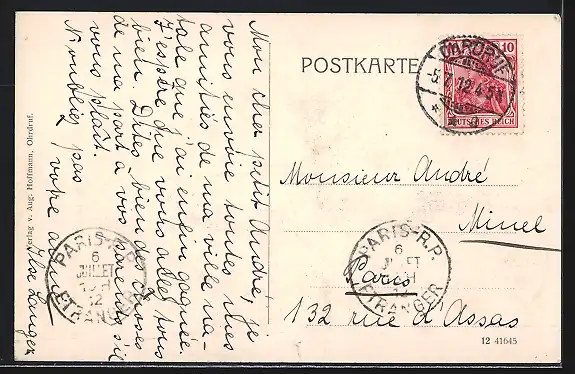 Mon cher petit André, je
vous envoie toutes mes
amitiés de ma ville na-
tale que j'ai enfin gagnée.
J'espère que vous allez tous
bien. Dites bien des choses
de ma part à vos parents s'il
vous plaît.
N'oubliez pas
votre
Ilse Langer
Verlag v. Aug. Hoffmann, Ohrdruf.
POSTKARTE
10
DEUTSCHES REICH
OHRDRUF
5.7.12.4-5N
Monsieur André
Minel
Paris
132 rue d'Assas
PARIS-R.P.
6
JUILLET
12
ETRANGER
PARIS-R.P.
6
ETRANGER
12 41645